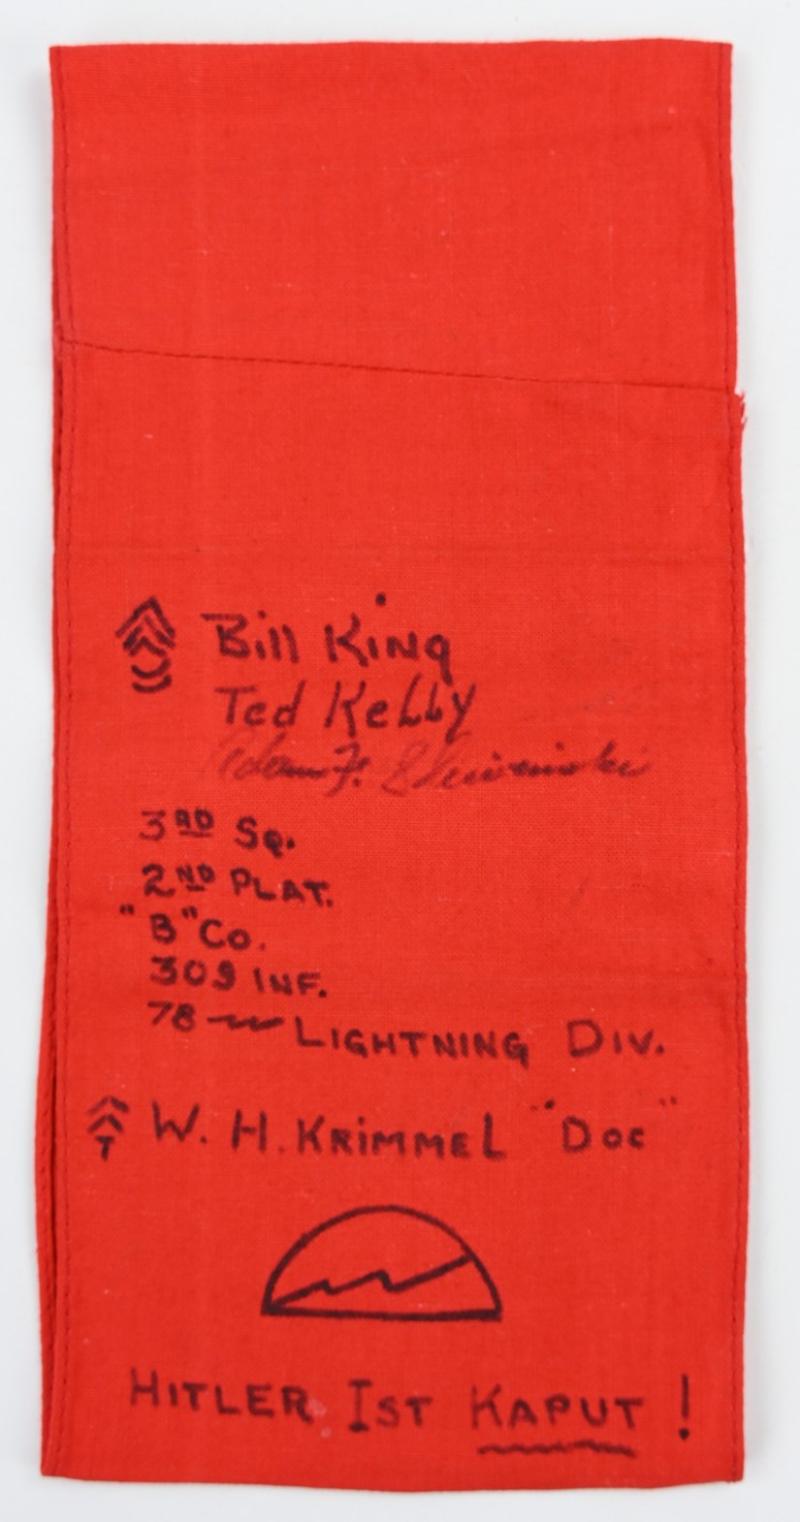 Bill King
Ted Kelly
Adam F.
3RD Sq.
2ND PLAT.
"B" Co.
309 INF.
78 LIGHTNING DIV.
T W. H. KRIMMEL "Doc"
HITLER IST KAPUT!